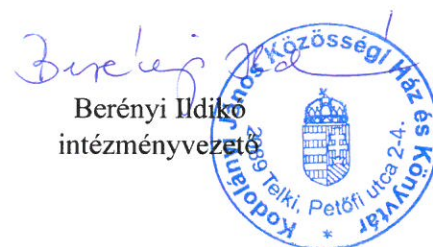 Berényi Ildikó
intézményvezető
Kodolányi János Közösségi Ház és Könyvtár
2089 Telki, Petőfi utca 2-4.
*